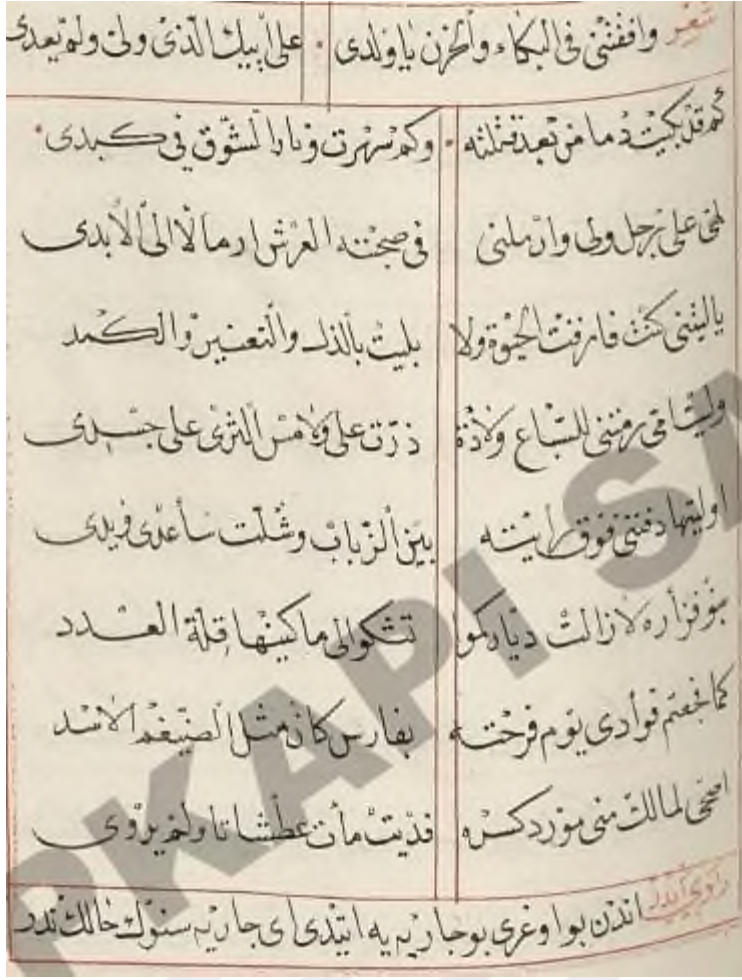 شعر وافقتنى فى البكاء والحزن ياولدى على ابيك الذى ولى ولم يعدى
كم قد بكيت دما من بعد قتلته وكم سهرت ونار الشوق فى كبدى
لهفى على رجل ولى وارملنى فى صحبته العرش ارمالا الى الابدى
ياليتنى كنت فارقت الحيوة ولا بليت بالذل والتعنير والكمد
وليت امى رمتنى للسباع ولا ذرت على ولامس الثرى على جسدى
اوليتها دفنتنى فوق رابيته بين الزباب وشلت ساعدى ويدى
بنو فزاره لازالت دياركموا تشكوالى ساكينها قلة العدد
كما فجعتم فوادى يوم فرحته بفارس كان مثل الضيغم الاسد
اضحى لمالك منى مورد كسره فديت مات عطشانا ولم يروى
راوى ايدر اندن بو اوغرى بو جاريه يه ايتدى اى جاريه سنوك حالك ندر
PKAPI SA